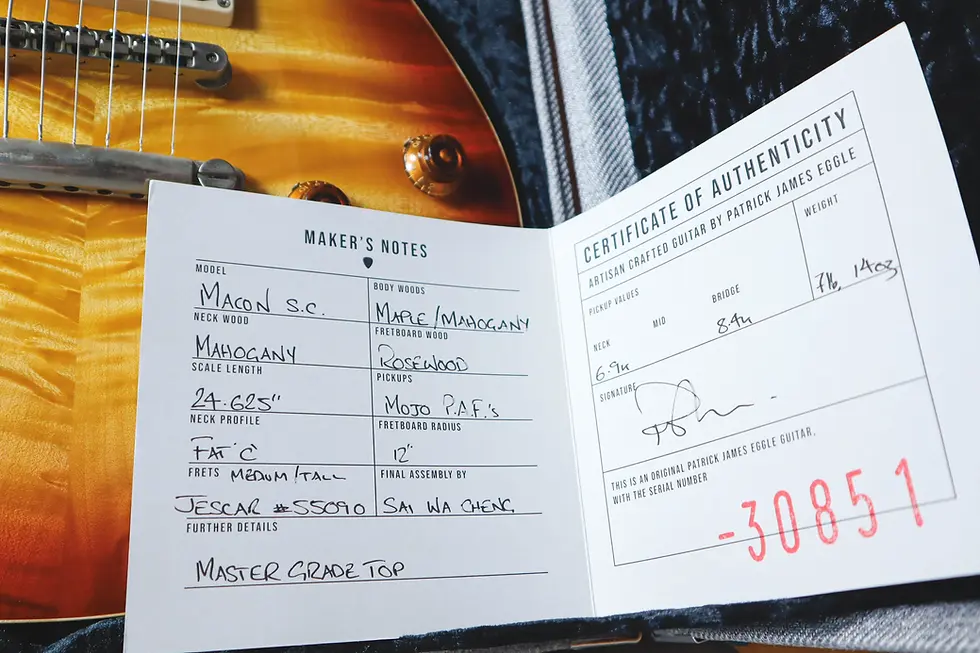 MAKER'S NOTES
MODEL
MACON S.C.
BODY WOODS
MAPLE/MAHOGANY
NECK WOOD
MAHOGANY
FRETBOARD WOOD
ROSEWOOD
SCALE LENGTH
24.625"
PICKUPS
MOJO P.A.F.'s
NECK PROFILE
FAT 'C'
FRETBOARD RADIUS
12"
FRETS MEDIUM/TALL
JESCAR #55090
FINAL ASSEMBLY BY
SAI WA CHENG
FURTHER DETAILS
MASTER GRADE TOP
CERTIFICATE OF AUTHENTICITY
ARTISAN CRAFTED GUITAR BY PATRICK JAMES EGGLE
PICKUP VALUES
NECK
6.9K
MID
BRIDGE
8.4K
WEIGHT
7lb, 14oz
SIGNATURE
THIS IS AN ORIGINAL PATRICK JAMES EGGLE GUITAR,
WITH THE SERIAL NUMBER
-30851